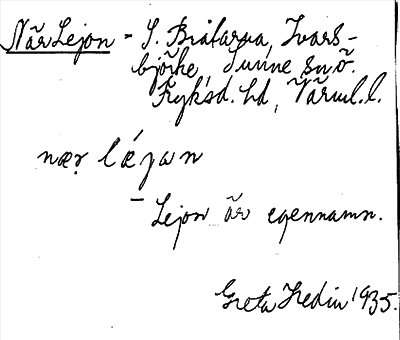 När Lejon - S. Bråfarna, Ivars-
björke, Sunne snö.
Fryksd. hd, Värml. l.
næṛ lǽjɑn
- Lejon är egennamn.
Greta Hedin 1935.